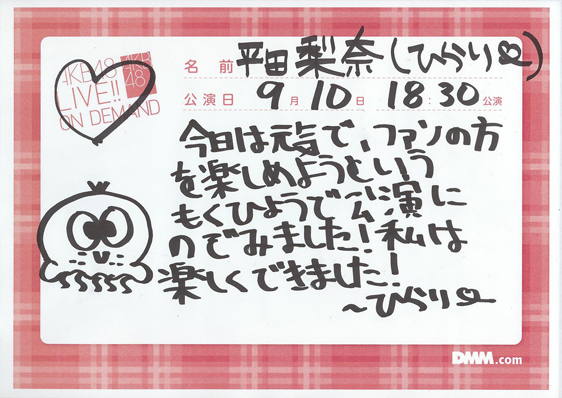 AKB48
LIVE!!
ON DEMAND
AKB
48
名前 平田梨奈(ひらり)
公演日 9月10日 18:30公演
今日は元気で、ファンの方
を楽しめようという
もくひょうで公演に
のでみました!私は
楽しくできました!
~ひらり
DMM.com